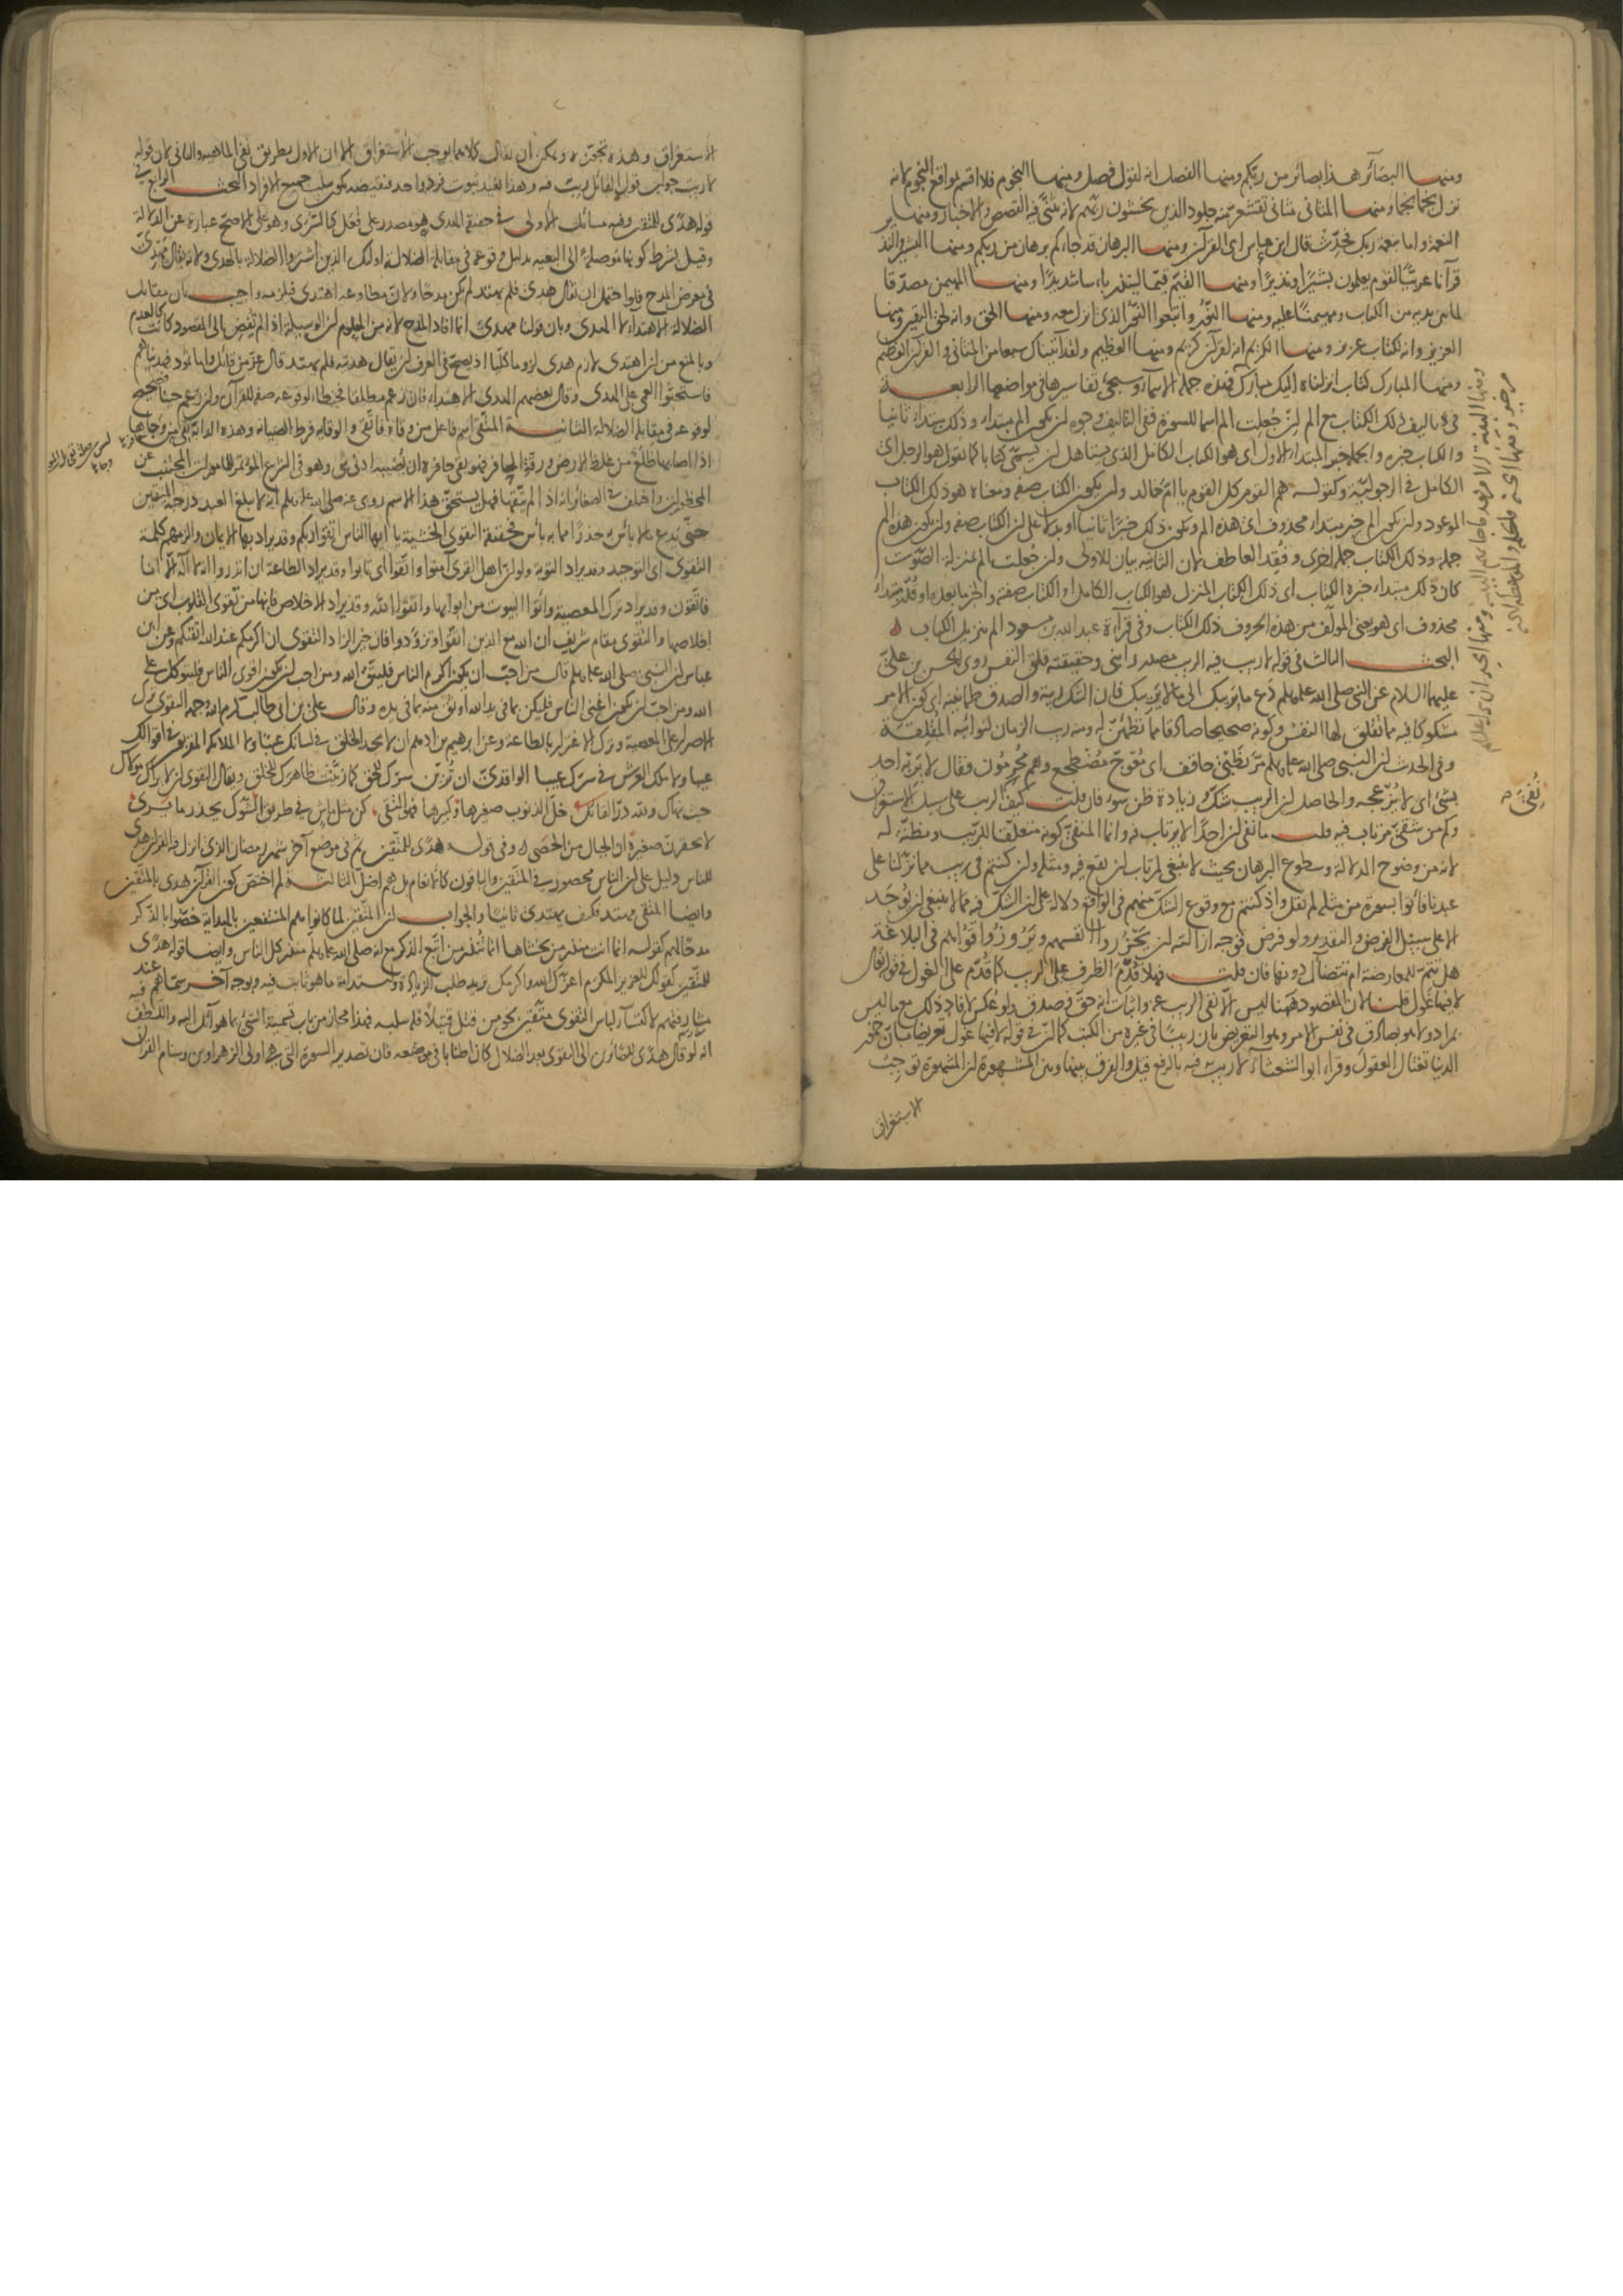 ومنها البصآئر هذا بصائر من ربكم ومنها الفصل انه لقول فصل ومنها النجوم فلا اقسم بمواقع النجوم لانه
نزل نجما نجما ومنها المثانى مثانى تقشعر منه جلود الذين يخشون ربهم لانه يثنى فيه القصص والاخبار ومنها
النعمة واما بنعمة ربك فحدث قال ابن عباس اى القرآن ومنها البرهان قد جاءكم برهان من ربكم ومنها البشير والنذير
قرآنا عربيا لقوم يعلمون بشيرا ونذيرا ومنها القيم قيما لينذر باسا شديدا ومنها المهيمن مصدقا
لما بين يديه من الكتاب ومهيمنا عليه ومنها النور واتبعوا النور الذى انزل معه ومنها الحق وانه لحق اليقين ومنها
العزيز وانه لكتاب عزيز ومنها الكريم انه لقرآن كريم ومنها العظيم ولقد آتيناك سبعا من المثانى والقرآن العظيم
ومنها المبارك كتاب انزلناه اليك مبارك فهذه جملة الاسمآء وسيجئ تفاسيرها فى مواضعها الرابعة
فى تاليف ذلك الكتاب مع الم ان جعلت الم اسما للسورة ففى التاليف وجوه ان يكون الم مبتداء وذلك مبتداء ثانيا
والكتاب خبره والجملة خبر المبتداء الاول اى هو الكتاب الكامل الذى يستاهل ان يسمى كتابا كما تقول هو الرجل اى
الكامل فى الرجولية وكقوله هم القوم كل القوم يا ام خالد وان يكون الكتاب صفة ومعناه هو ذلك الكتاب
الموعود وان يكون الم خبر مبتداء محذوف اى هذه الم ويكون ذلك خبرا ثانيا او بدلا على ان الكتاب صفة وان يكون هذه الم
جملة وذلك الكتاب جملة اخرى وفقد العاطف لان الثانية بيان للاولى وان جعلت الم بمنزلة الصوت
كان ذلك مبتداء خبره الكتاب اى ذلك الكتاب المنزل هو الكتاب الكامل او الكتاب صفة والخبر ما بعده او قدر مبتداء
محذوف اى هو يعنى المؤلف من هذه الحروف ذلك الكتاب وفى قرآءة عبد الله بن مسعود الم تنزيل الكتاب
البحث الثالث فى قوله لا ريب فيه الريب مصدر رابنى وحقيقته قلق النفس روى الحسن بن على
عليهما السلام عن النبى صلى الله عليه وسلم دع ما يريبك الى ما لا يريبك فان الشك ريبة والصدق طمانينة اى كون الامر
مشكوكا فيه مما تقلق لها النفس وكونه صحيحا صادقا مما تطمئن له ومنه ريب الزمان لنوائبه المقلقة
وفى الحديث ان النبى صلى الله عليه وسلم مر بظبى حاقف اى معوج مضطجع وهم محرمون فقال لا يربه احد
بشئ اى لا يزعجه والحاصل ان الريب شك وزيادة ظن سوء فان قلت كيف الريب على سبيل الاستغراق
وكم من شقى مرتاب فيه قلت ما نفى ان احدا لا يرتاب فيه وانما المنفى كونه متعلقا للريب ومظنة له
لانه من وضوح الدلالة وسطوع البرهان بحيث لا ينبغى لمرتاب ان يقع فيه ومثله وان كنتم فى ريب مما نزلنا على
عبدنا فأتوا بسورة من مثله لم نقل واذ كنتم مع وقوع الشك منهم فى الواقع دلالة على ان الشك فيه مما لا ينبغى ان يوجد
الا على سبيل الفرض والتقدير ولو فرض فوجه ازالته ان يحزروا انفسهم ويروزوا قواهم فى البلاغة
هل تتم للمعارضة ام تتضآل دونها فان قلت فهلا قدم الظرف على الريب كما قدم على الغول فى قوله تعالى
لا فيها غول قلت لان المقصود ههنا ليس الا نفى الريب عنه واثبات انه حق وصدق ولو عكس لافاد ذلك مع ما ليس
بمراد ولا هو بصادق فى نفس الامر وهو التعريض بان ريبا فى غيره من الكتب كما ان فى قوله لا فيها غول تعريضا بان خمور
الدنيا تغتال العقول وقراء ابو الشعثاء لا ريب فيه بالرفع قيل والفرق بينها وبين المشهورة ان المشهورة توجب
الاستغراق
الاستغراق وهذه تجوزه ويمكن ان يقال كلاهما يوجب الاستغراق الا ان الاول بطريق نفى الماهية والثانى لان قوله
لا ريب جواب قول القائل أريب فيه وهذا يفيد ثبوت فرد واحد فنقيضه يكون سلب جميع الافراد البحث الرابع فى
قوله هدى للمتقين وفيه مسائل الاولى فى حقيقة الهدى هو مصدر على فعل كالسرى وهو على الاصح عبارة عن الدلالة
وقيل بشرط كونها موصلة الى البغية بدليل وقوعه فى مقابلة الضلالة اولئك الذين اشتروا الضلالة بالهدى ولانه يقال مهدى
فى معرض المدح فلو احتمل ان يقال هدى فلم يهتد لم يكن مدحا ولان مطاوعه اهتدى فلزمه واجيب بان مقابل
الضلالة الاهتداء لا الهدى وبان قولنا مهدى انما افاد المدح لانه من المعلوم ان الوسيلة اذا لم تفض الى المقصود كانت كالعدم
وبالمنع من ان اهتدى لازم هدى لزوما كليا اذ يصح فى العرف ان يقال هديته فلم يهتد قال عز من قائل واما ثمود فهديناهم
فاستحبوا العمى على الهدى وقال بعضهم الهدى الاهتداء فان زعم مطلقا فخطاء لوقوعه صفة للقرآن وان زعم حينا فصحيح
لوقوعه فى مقابلة الضلالة الثانية المتقى اسم فاعل من وقاه فاتقى والوقاية فرط الصيانة وهذه الدابة تقى من وجاها
اذا اصابها ظلع من غلظ الارض ورقة الحافر فهو يقى حافره ان يصيبه ادنى شئ وهو فى الشرع المؤتمر للمامورات المجتنب عن
المحظورات واختلف فى الصغائر انه اذا لم يتقها فهل يستحق هذا الاسم روى عنه صلى الله عليه وسلم انه لا يبلغ العبد درجة المتقين
حتى يدع ما لا بأس به حذرا مما به بأس فحقيقة التقوى الخشية يا ايها الناس اتقوا ربكم وقد يراد بها الايمان والزمهم كلمة
التقوى اى التوحيد وقد يراد التوبة ولو ان اهل القرى آمنوا واتقوا اى تابوا وقد يراد الطاعة ان انذروا انه لا اله الا انا
فاتقون وقد يراد ترك المعصية وأتوا البيوت من ابوابها واتقوا الله وقد يراد الاخلاص فانها من تقوى القلوب اى من
اخلاصها والتقوى مقام شريف ان الله مع الذين اتقوا وتزودوا فان خير الزاد التقوى ان اكرمكم عند الله اتقيكم وعن ابن
عباس ان النبى صلى الله عليه وسلم قال من احب ان يكون اكرم الناس فليتق الله ومن احب ان يكون اقوى الناس فليتوكل على
الله ومن احب ان يكون اغنى الناس فليكن بما فى يد الله اوثق منه بما فى يده وقال على بن ابى طالب كرم الله وجهه التقوى ترك
الاصرار على المعصية وترك الاغترار بالطاعة وعن ابرهيم بن ادهم ان لا يجد الخلق فى لسانك عيبا ولا الملائكة المقربون فى افعالك
عيبا ولا ملك العرش فى سرك عيبا الواقدى ان تزين سرك للحق كما زينت ظاهرك للخلق ويقال التقوى ان لا يراك مولاك
حيث نهاك ولله در القائل خل الذنوب صغيرها وكبيرها فهو التقى كن مثل ماش فى طريق الشوك يحذر ما يرى
لا تحقرن صغيرة ان الجبال من الحصى وفى قوله هدى للمتقين ثم فى موضع آخر شهر رمضان الذى انزل فيه القرآن هدى
للناس دليل على ان الناس محصورون فى المتقين والباقون كالانعام بل هم اضل الثالثة لم اختص كون القرآن هدى بالمتقين
وايضا المتقى مهتد فكيف يهتدى ثانيا والجواب ان المتقين لما كانوا هم المنتفعين بالهداية خصوا بالذكر
مدحا لهم كقوله انما انت منذر من يخشاها انما تنذر من اتبع الذكر مع انه صلى الله عليه وسلم منذر كل الناس وايضا قوله هدى
للمتقين كقولك للعزيز المكرم اعزك الله واكرمك تريد طلب الزيادة واستدامة ما هو ثابت فيه وبوجه آخر سماهم عند
مشارفتهم لاكتسآء لباس التقوى متقين نحو من قتل قتيلا فله سلبه فهذا مجاز من باب تسمية الشئ بما هو آئل اليه واللطف فيه
انه لو قال هدى للصائرين الى التقوى بعد الضلال كان اطنابا فى موضعه فان تصدير السورة التى هى اولى الزهراوين وسنام القرآن